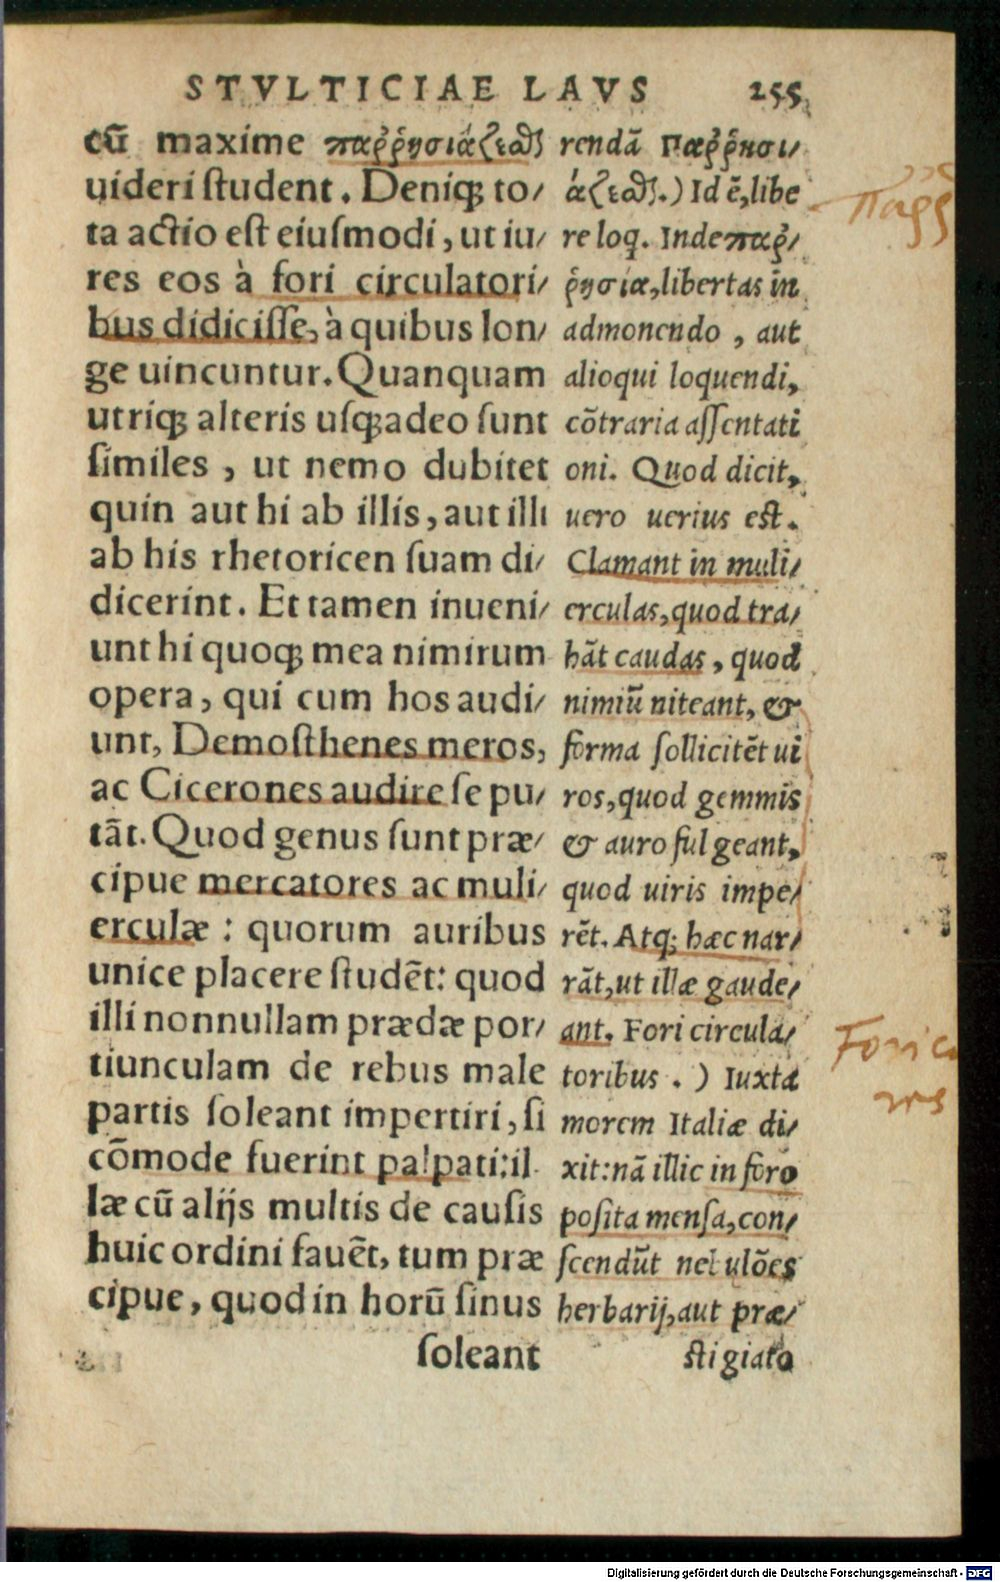 STVLTICIAE LAVS 255
cū maxime παῤῥησιάζεσθαι
uideri student. Deniqꝫ to/
ta actio est eiusmodi, ut iu/
res eos à fori circulatori/
bus didicisse, à quibus lon/
ge uincuntur. Quanquam
utriqꝫ alteris usqꝫadeo sunt
similes, ut nemo dubitet
quin aut hi ab illis, aut illi
ab his rhetoricen suam di/
dicerint. Et tamen inueni/
unt hi quoqꝫ mea nimirum
opera, qui cum hos audi/
unt, Demosthenes meros,
ac Cicerones audire se pu/
tāt. Quod genus sunt præ/
cipue mercatores ac muli/
erculæ: quorum auribus
unice placere studēt: quod
illi nonnullam prædæ por/
tiunculam de rebus male
partis soleant impertiri, si
cōmode fuerint palpati: il
læ cū alijs multis de causis
huic ordini fauēt, tum præ
cipue, quod in horū sinus
soleant
rendā παῤῥησι/
άζεσθαι.) Id ē, libe
re loq. Inde παῤ/
ῥησία, libertas in
admonendo, aut
alioqui loquendi,
cōtraria assentati
oni. Quod dicit,
uero uerius est.
Clamant in muli/
erculas, quod tra/
hāt caudas, quod
nimiū niteant, &
forma sollicitēt ui
ros, quod gemmis
& auro fulgeant,
quod uiris impe/
rēt. Atqꝫ hæc nar/
rāt, ut illæ gaude/
ant. Fori circula/
toribus.) Iuxta
morem Italiæ di/
xit: nā illic in foro
posita mensa, con/
scendūt nebulōes
herbarij, aut præ/
stigiato
Παρρ
Fori c
Digitalisierung gefördert durch die Deutsche Forschungsgemeinschaft - DFG